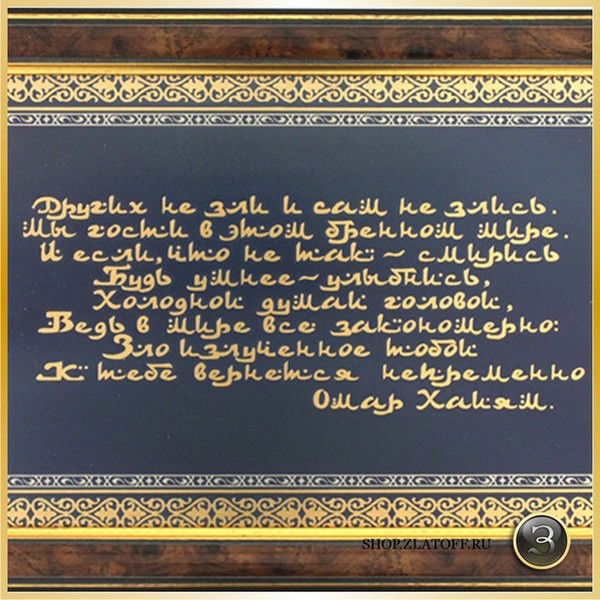 Других не зли и сам не злись.
Мы гости в этом бренном мире.
И если, что не так - смирись
Будь умнее - улыбнись,
Холодной думай головой,
Ведь в мире все закономерно:
Зло излученное тобой
К тебе вернется непременно
Омар Хайям.
SHOP.ZLATOFF.RU
З